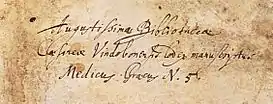 Augustissimæ Bibliothecæ
Cæsareæ Vindobonensis Codex manuscriptus
Medicus Græcus N. 5.